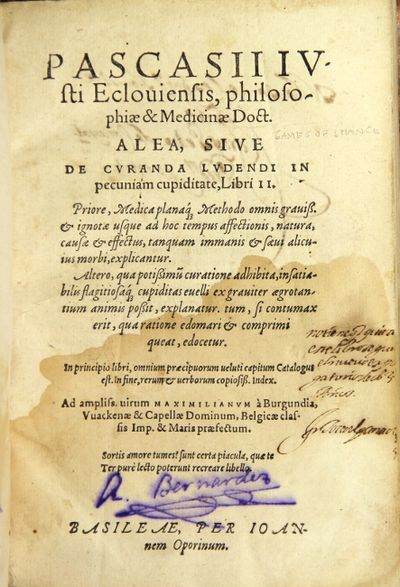 PASCASII IV-
sti Ecloviensis, philoso-
phiæ & Medicinæ Doct.
ALEA, SIVE
GAMES OF CHANCE
DE CVRANDA LVDENDI IN
pecuniam cupiditate, Libri II.
Priore, Medica planaq́; Methodo omnis grauiß.
& ignotæ usque ad hoc tempus affectionis, natura,
causæ & effectus, tanquam immanis & sæui alicu-
ius morbi, explicantur.
Altero, qua potissimũ curatione adhibita, insatia-
bilis flagitiosaq́; cupiditas euelli ex grauiter ægrotan-
tium animis poßit, explanatur. tum, si contumax
erit, qua ratione edomari & comprimi
queat, edocetur.
In principio libri, omnium præcipuorum ueluti capitum Catalogus
est. In fine, rerum & uerborum copiosiß. Index.
Ad ampliss. uirum MAXIMILIANVM à Burgundia,
Vuackenæ & Capellæ Dominum, Belgicæ clas-
sis Imp. & Maris præfectum.
Sortis amore tumes? sunt certa piacula, quæ te
Ter purè lecto poterunt recreare libello.
A. Bernardez
BASILEAE, PER IOAN-
nem Oporinum.